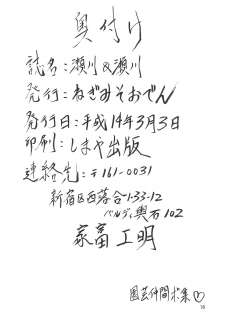 奥付け
誌名:瀬川&瀬川
発行:ねぎみそおでん
発行日:平成14年3月3日
印刷:しまや出版
連絡先:〒161-0031
新宿区西落合1-33-12
ベルデ輿石102
家富工明
園芸仲間求集♡
18